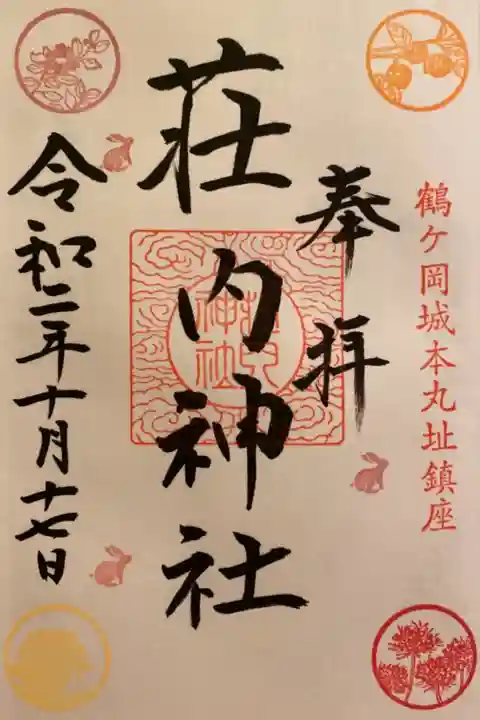 鶴ケ岡城本丸址鎮座
奉拝
荘内神社
令和二年十月十七日